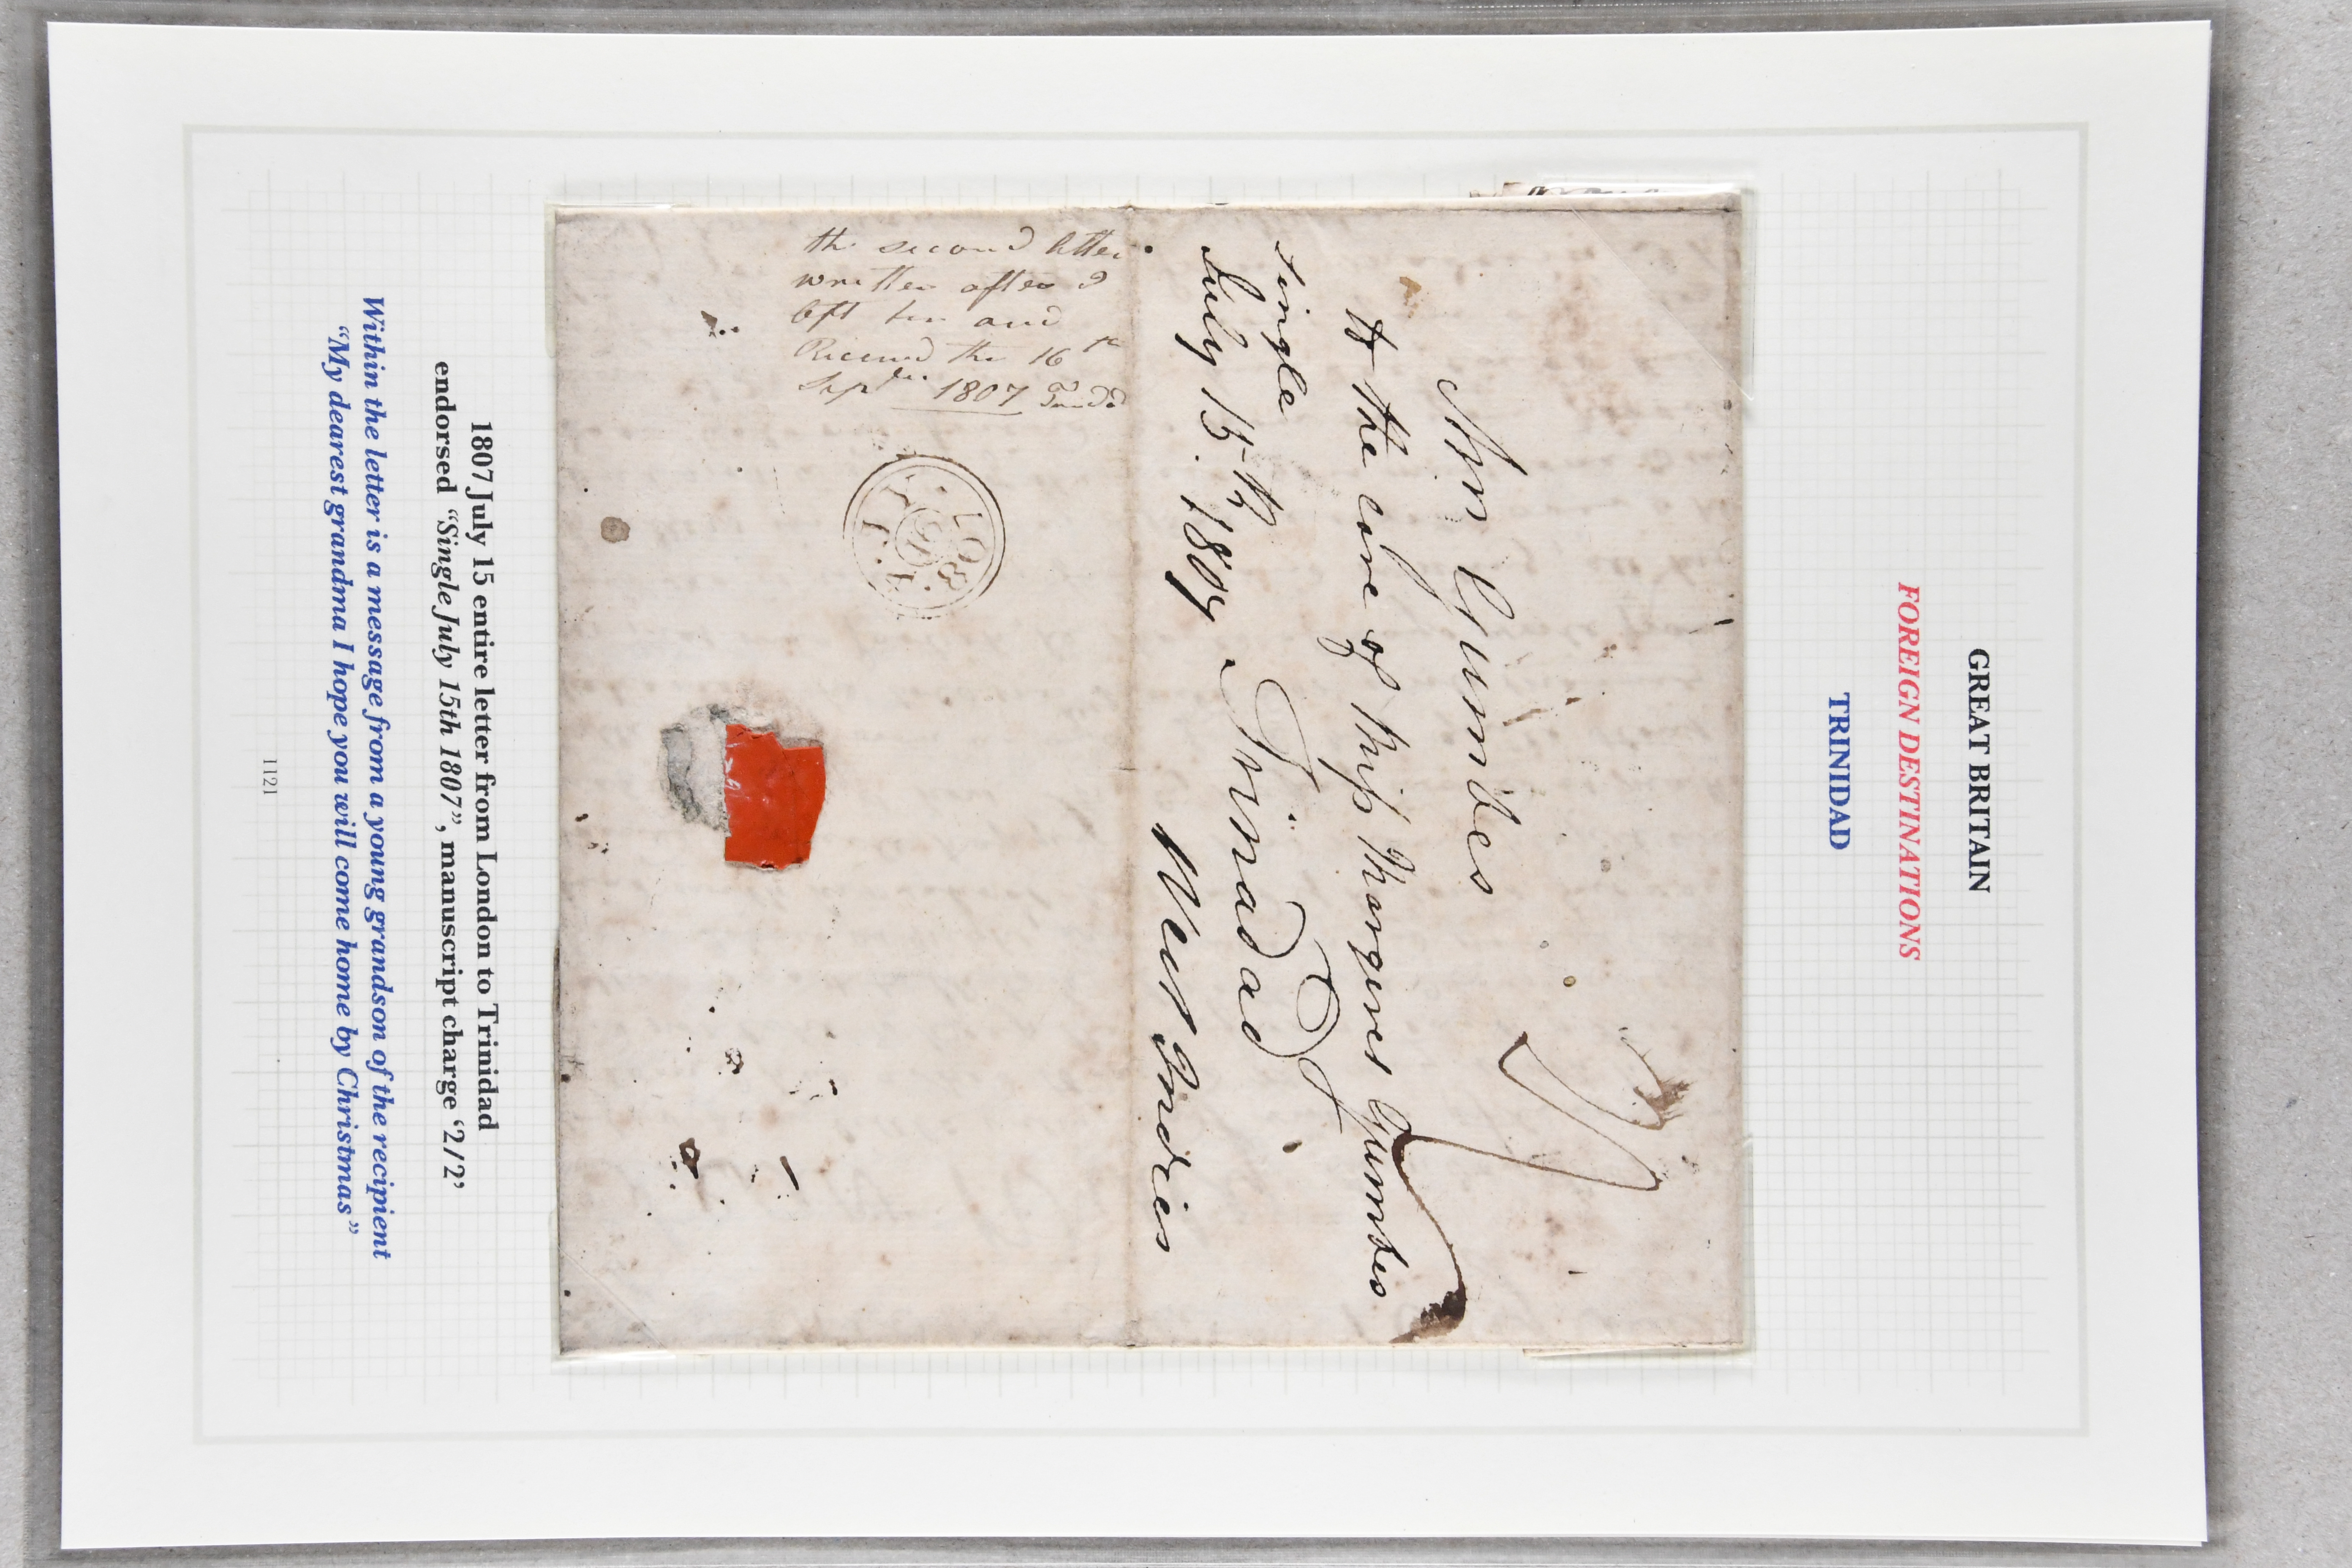 GREAT BRITAIN
FOREIGN DESTINATIONS
TRINIDAD
Mrs Gumbes
to the care of Miss Margaret Gumbes
Single
Trinidad
July 15th 1807
West Indies
the second letter
written after I
left her and
Received the 16th
Septbr. 1807 Trindd
1807 July 15 entire letter from London to Trinidad
endorsed “Single July 15th 1807”, manuscript charge ‘2/2’
Within the letter is a message from a young grandson of the recipient
“My dearest grandma I hope you will come home by Christmas”
1121